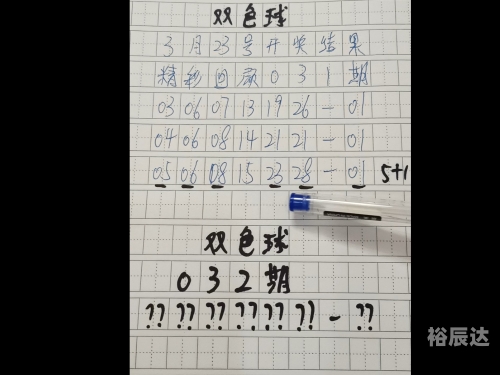 双色球
3月23号开奖结果
精彩回顾031期
03 06 07 13 19 26 - 01
04 06 08 14 21 21 - 01
05 06 08 15 23 28 - 01 5+1
双色球
032期
?? ?? ?? ?? ?? ?? - ??
裕辰达